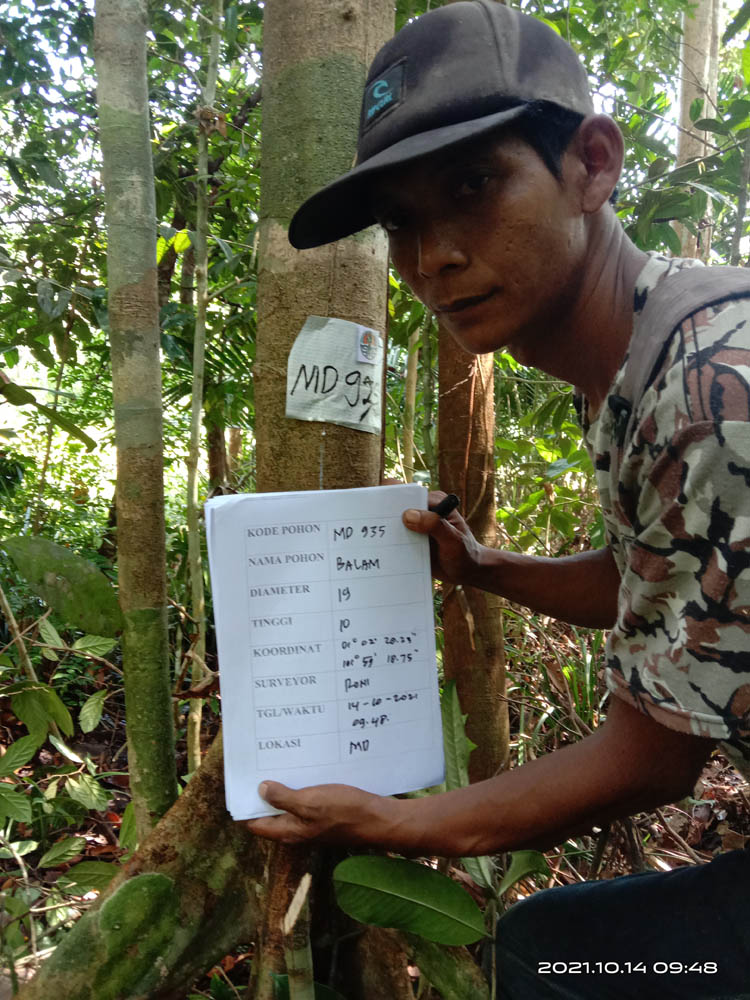 RIP CURL
MD 93
KODE POHON MD 935
NAMA POHON BALAM
DIAMETER 19
TINGGI 10
KOORDINAT 01° 02' 20.29"
101° 59' 18.75"
SURVEYOR RONI
TGL/WAKTU 14-10-2021
09.48.
LOKASI MD
2021.10.14 09:48